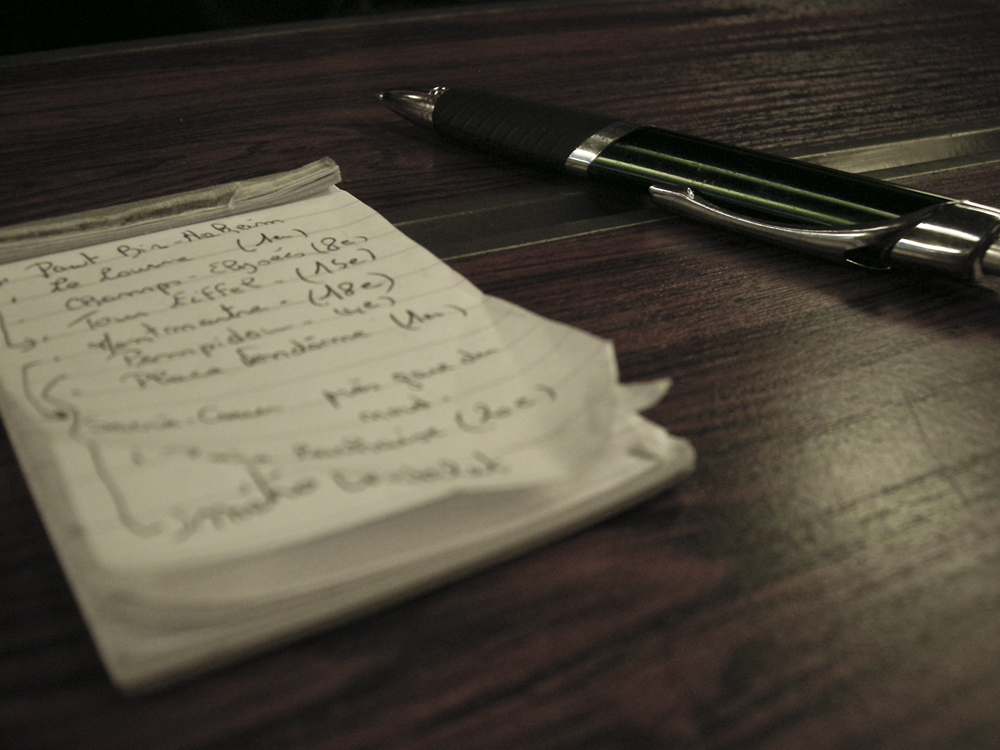 Pont Bir-Hakeim
Le Louvre (1er)
Champs-Elysées (8e)
Tour Eiffel - (15e)
Montmartre - (18e)
Pompidou - 4e
Place Vendôme (1er)
Sacré-Coeur près gare du
nord.
(20e)